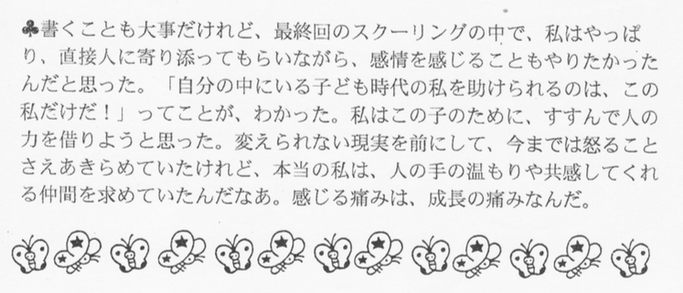 ♣書くことも大事だけれど、最終回のスクーリングの中で、私はやっぱ
り、直接人に寄り添ってもらいながら、感情を感じることもやりたかった
んだと思った。「自分の中にいる子ども時代の私を助けられるのは、この
私だけだ！」ってことが、わかった。私はこの子のために、すすんで人の
力を借りようと思った。変えられない現実を前にして、今までは怒ること
さえあきらめていたけれど、本当の私は、人の手の温もりや共感してくれ
る仲間を求めていたんだなあ。感じる痛みは、成長の痛みなんだ。